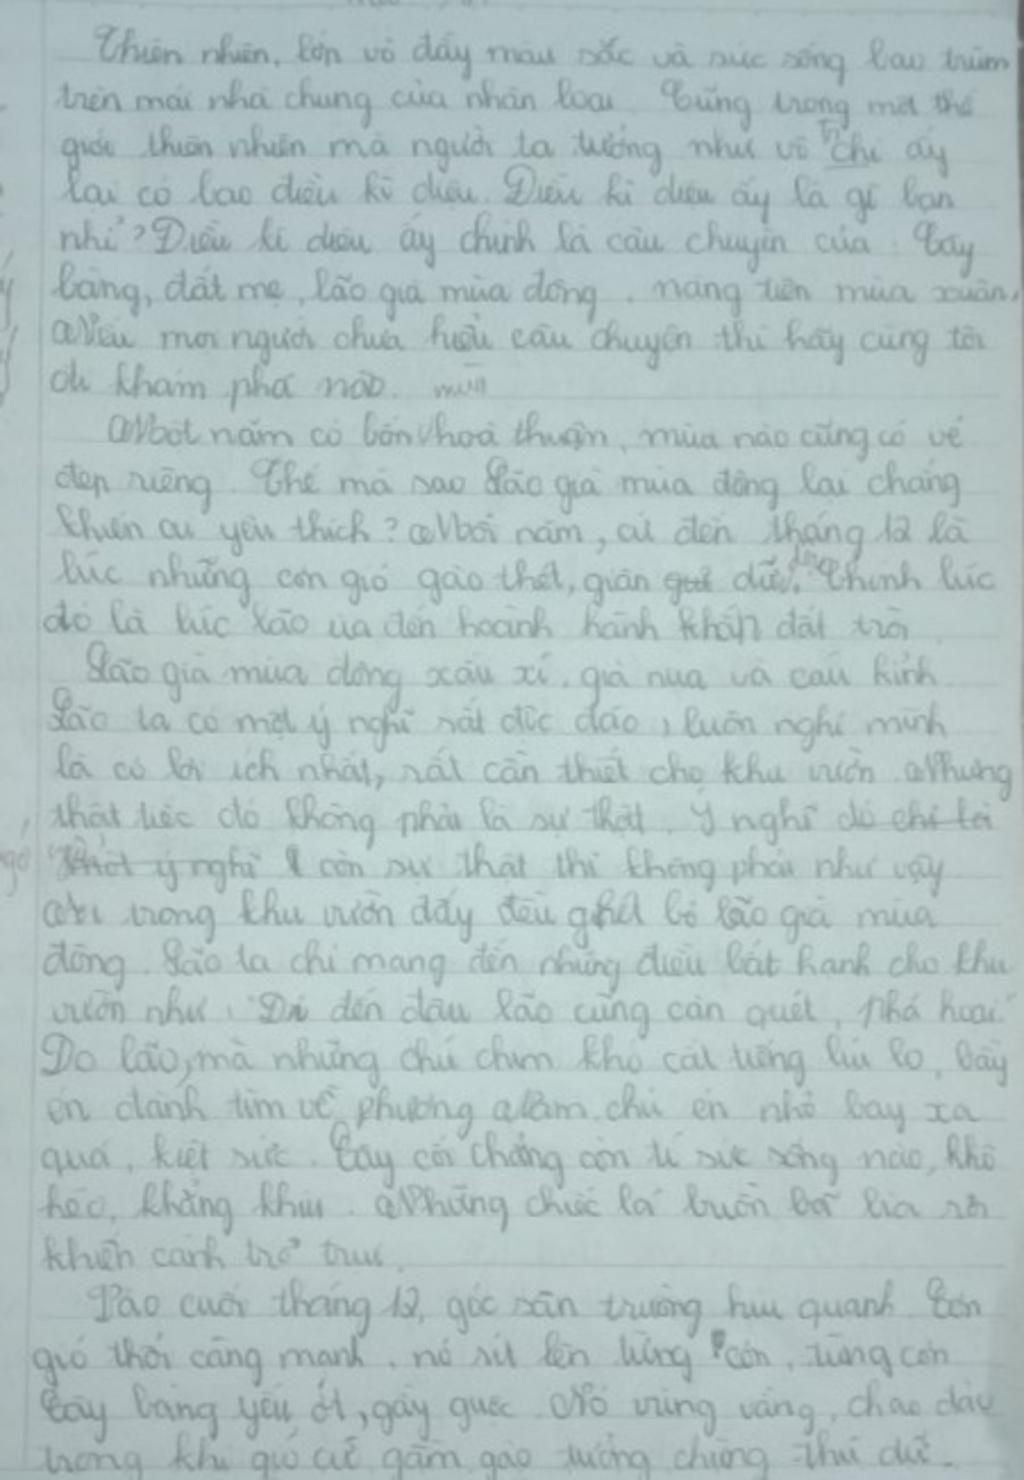 Thiên nhiên, lớn vô đầy màu sắc và sức sống bao trùm
trên mái nhà chung của nhân loại. Cũng trong một thế
giới thiên nhiên mà người ta tưởng như vô tri ấy
lại có bao điều kì diệu. Điều kì diệu ấy là gì bạn
nhỉ? Điều kì diệu ấy chính là câu chuyện của Cây
bàng, đất mẹ, lão già mùa đông, nàng tiên mùa xuân,
Nếu mọi người chưa hiểu câu chuyện thì hãy cùng tôi
đi khám phá nào.
Một năm có bốn mùa hoà thuận, mùa nào cũng có vẻ
đẹp riêng. Thế mà sao Lão già mùa đông lại chẳng
khiến ai yêu thích? Mỗi năm, cứ đến tháng 12 là
lúc những cơn gió gào thét, giận dữ. Chính lúc
đó là lúc Lão ùa đến hoành hành khắp đất trời
Lão già mùa đông xấu xí, già nua và cáu kỉnh
Lão ta có một ý nghĩ rất độc đáo, luôn nghĩ mình
là có lợi ích nhất, rất cần thiết cho khu vườn. Nhưng
thật tiếc đó không phải là sự thật. Ý nghĩ đó chỉ là
một ý nghĩ còn sự thật thì không phải như vậy
Ai trong khu vườn đấy đều ghét bỏ lão già mùa
đông. Lão ta chỉ mang đến những điều bất hạnh cho khu
vườn như: "Đi đến đâu lão cũng càn quét, phá hoại."
Do lão, mà những chú chim khó cất tiếng líu lo, bầy
én đành tìm về phương Nam, chú én nhỏ bay xa
quá, kiệt sức. Cây cối chẳng còn tí sức sống nào, khô
héo, khẳng khiu. Những chiếc lá buồn bã lìa rời
khiến cành trơ trụi.
Vào cuối tháng 12, góc sân trường hiu quạnh. Cơn
gió thổi càng mạnh, nó rít lên từng cơn, từng cơn
Cây bàng yếu ớt, gầy guộc. Nó vùng vằng, chao đảo
trong khi gió cứ gầm gào tưởng chừng thú dữ.